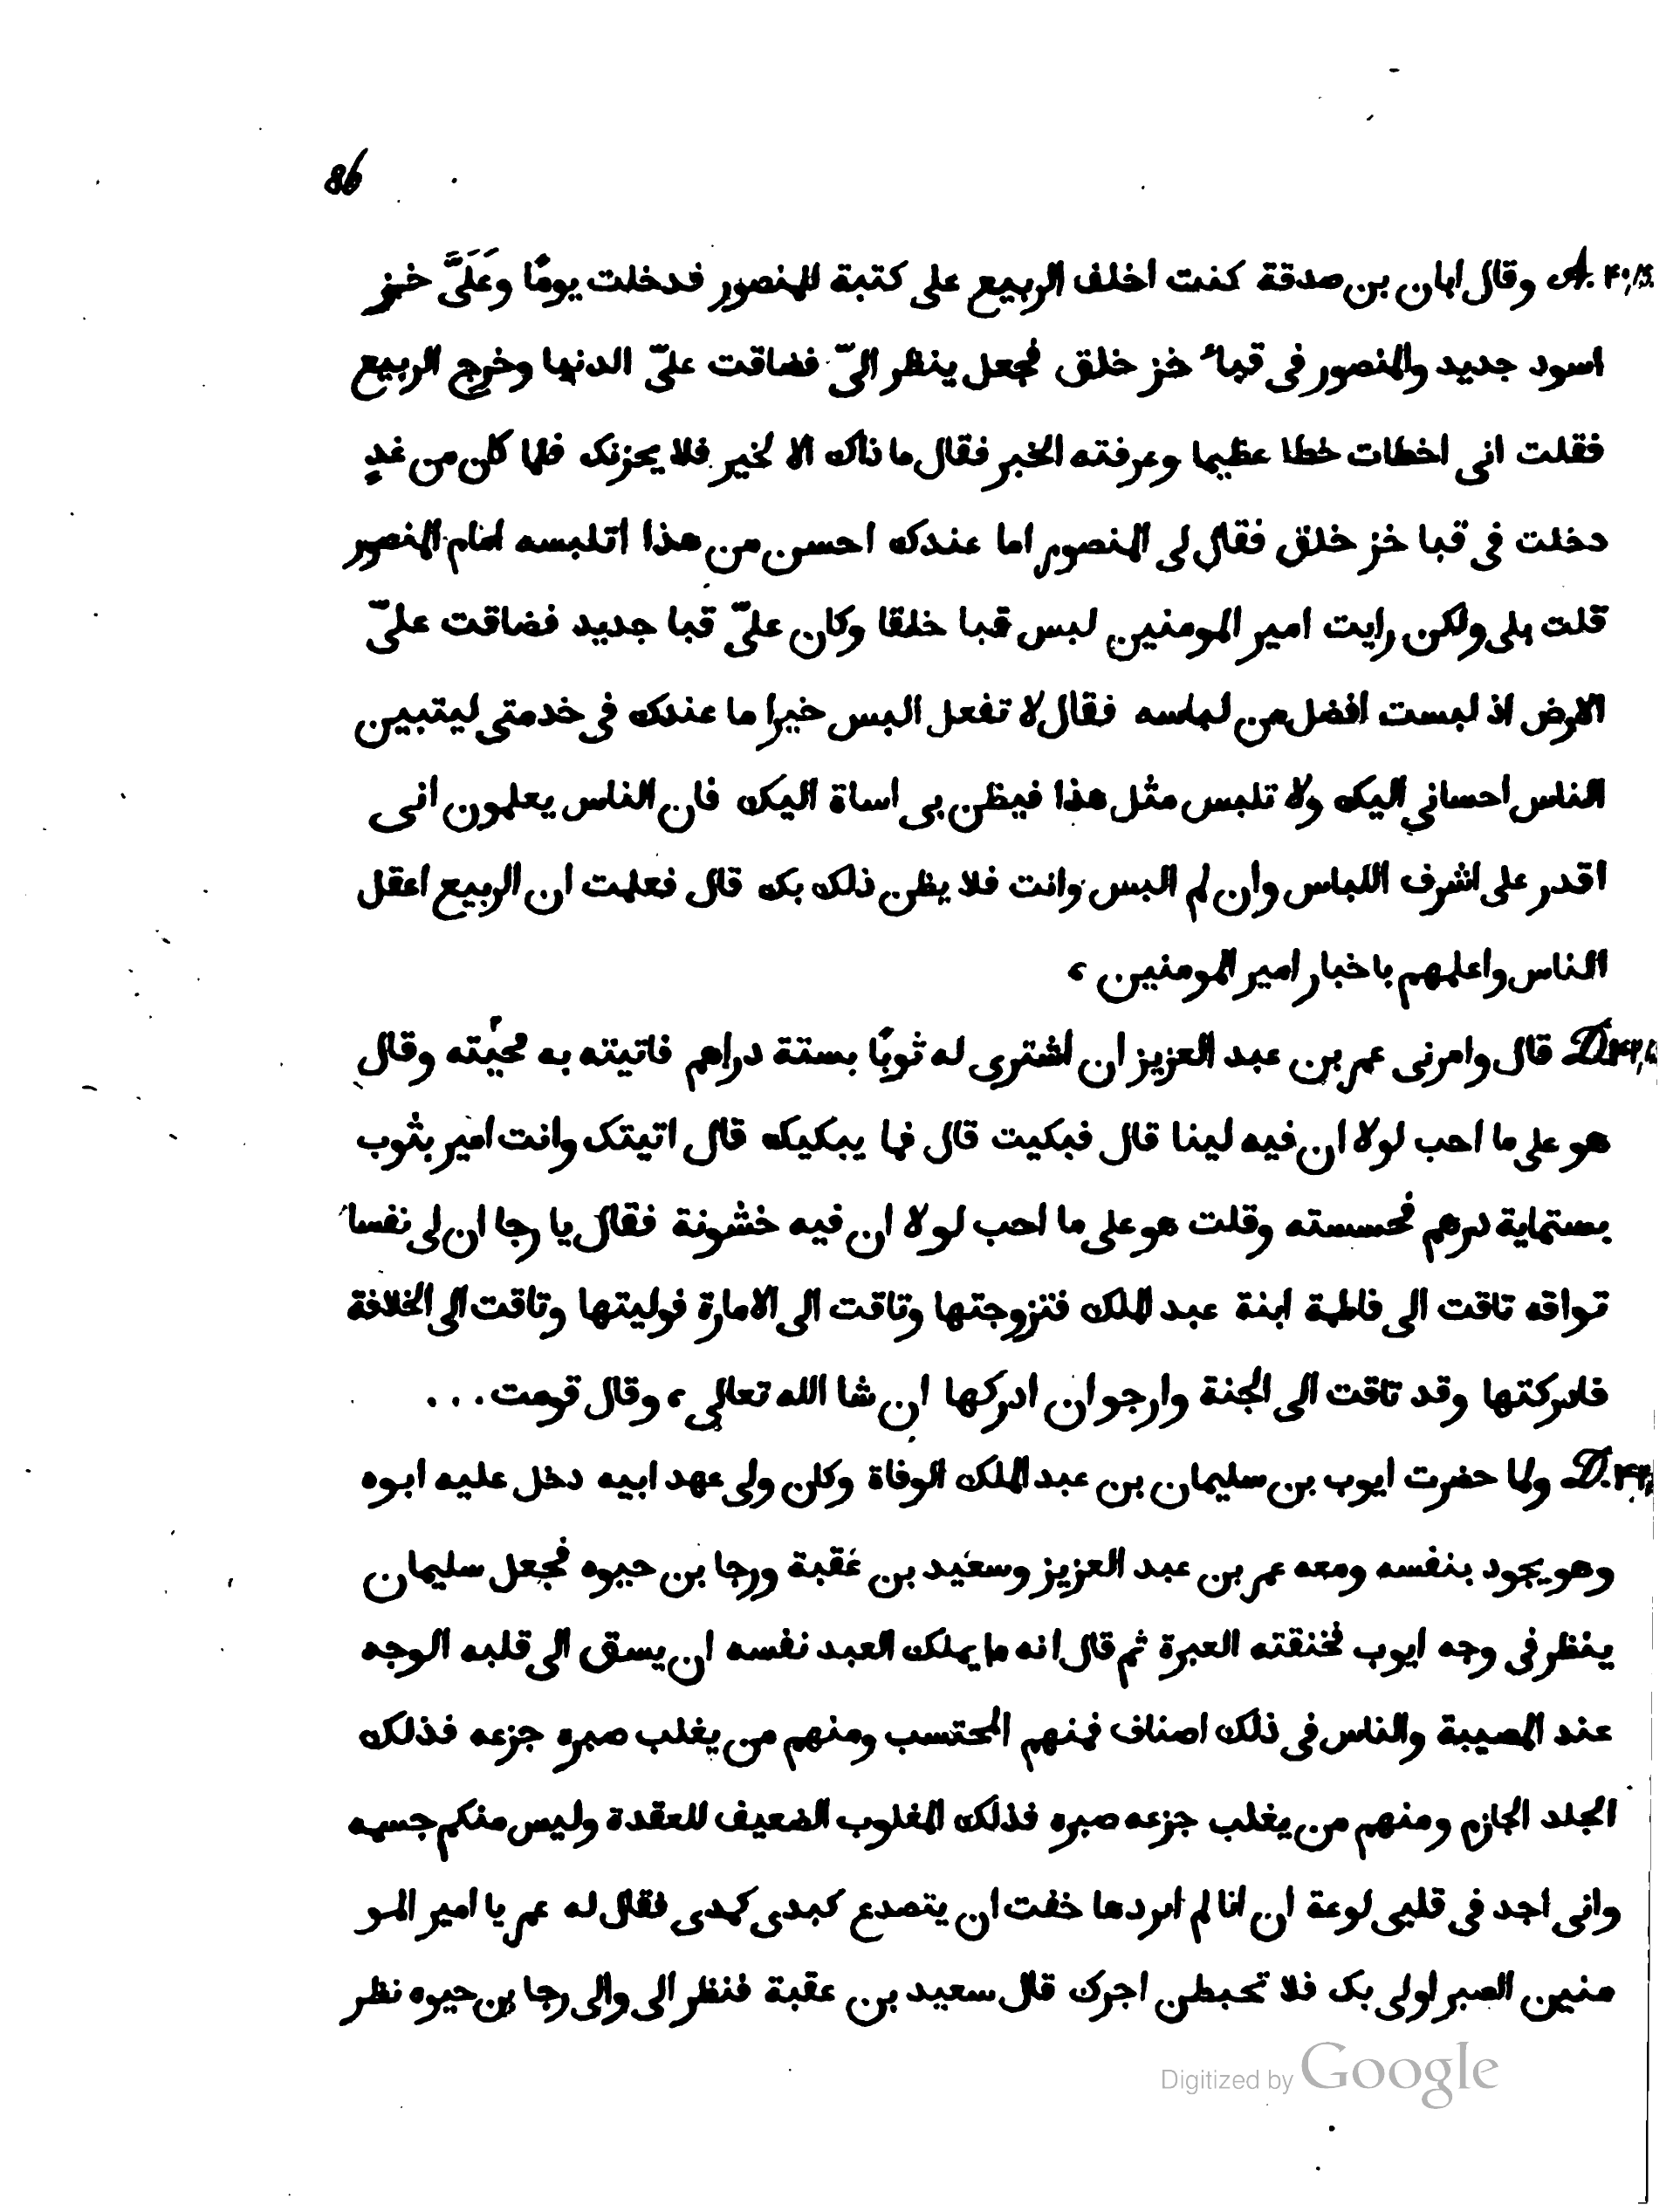 86
A. ٢٠,١٥. وقال ابان بن صدقة كنت اخلف الربيع على كتبة المنصور فدخلت يومًا وعَلَىَّ خز
اسود جديد والمنصور فى قباء خز خلق فجعل ينظر الىّ فضاقت علىّ الدنيا وخرج الربيع
فقلت انى اخطات خطا عظيما وعرفته الخبر فقال ما ذاك الا لخير فلا يحزنك فلما كان من غدٍ
دخلت فى قبا خز خلق فقال لى المنصور اما عندك احسن من هذا اتلبسه امام المنصور
قلت بلى ولكن رايت امير المومنين لبس قبا خلقا وكان علىّ قبا جديد فضاقت علىّ
الارض اذ لبست افضل من لباسه فقال لا تفعل البس خيرا ما عندك فى خدمتى ليتبين
الناس احسانى اليك ولا تلبس مثل هذا فيظن بى اساة اليك فان الناس يعلمون انى
اقدر على اشرف اللباس وان لم البس وانت فلا يظن ذلك بك قال فعلمت ان الربيع اعقل
الناس واعلمهم باخبار امير المومنين ،
D. قال وامرنى عمر بن عبد العزيز ان اشترى له ثوبًا بستة دراهم فاتيته به فجسّته وقال
هو على ما احب لولا ان فيه لينا قال فبكيت قال فما يبكيك قال اتيتك وانت امير بثوب
بستماية درهم فحسسته وقلت هو على ما احب لولا ان فيه خشونة فقال يا رجا ان لى نفسا
تواقه تاقت الى فاطمة ابنة عبد الملك فتزوجتها وتاقت الى الامارة فوليتها وتاقت الى الخلافة
فادركتها وقد تاقت الى الجنة وارجو ان ادركها ان شا الله تعالى ، وقال قومت . . .
D. ولما حضرت ايوب بن سليمان بن عبد الملك الوفاة وكان ولى عهد ابيه دخل عليه ابوه
وهو يجود بنفسه ومعه عمر بن عبد العزيز وسعيد بن عُقبة ورجا بن حيوه فجعل سليمان
ينظر فى وجه ايوب فخنقته العبرة ثم قال انه ما يملك العبد نفسه ان يسق الى قلبه الوجه
عند المصيبة والناس فى ذلك اصناف فمنهم المحتسب ومنهم من يغلب صبره جزعه فذلك
الجلد الجازم ومنهم من يغلب جزعه صبره فذلك المغلوب الضعيف للعقدة وليس منكم جسمه
وانى اجد فى قلبى لوعة ان انا لم ابردها خفت ان يتصدع كبدى كمدى فقال له عمر يا امير المو
منين الصبر اولى بك فلا تحبطن اجرك قال سعيد بن عقبة فنظر الى والى رجا بن حيوه نظر
Digitized by Google